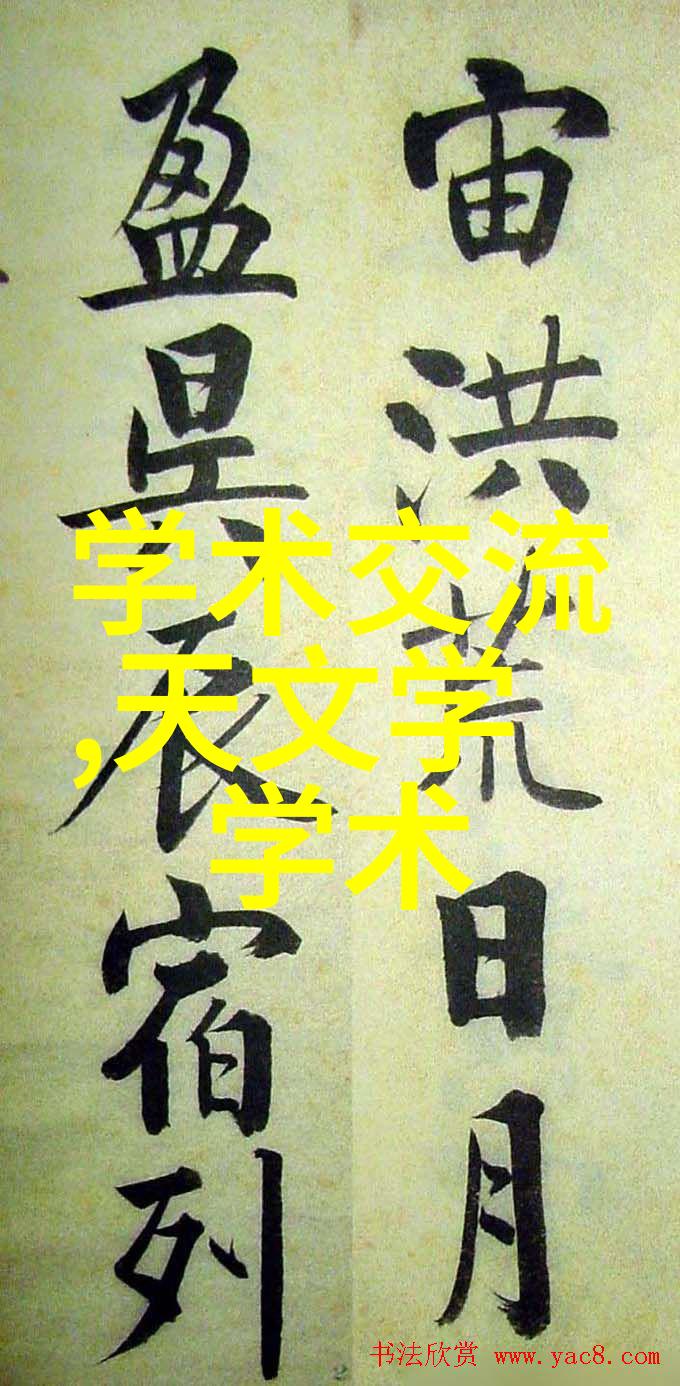 宙洪荒日月
盈昃辰宿列
学术交流
,天文学
学术
书法欣赏 www.yac8.com
2